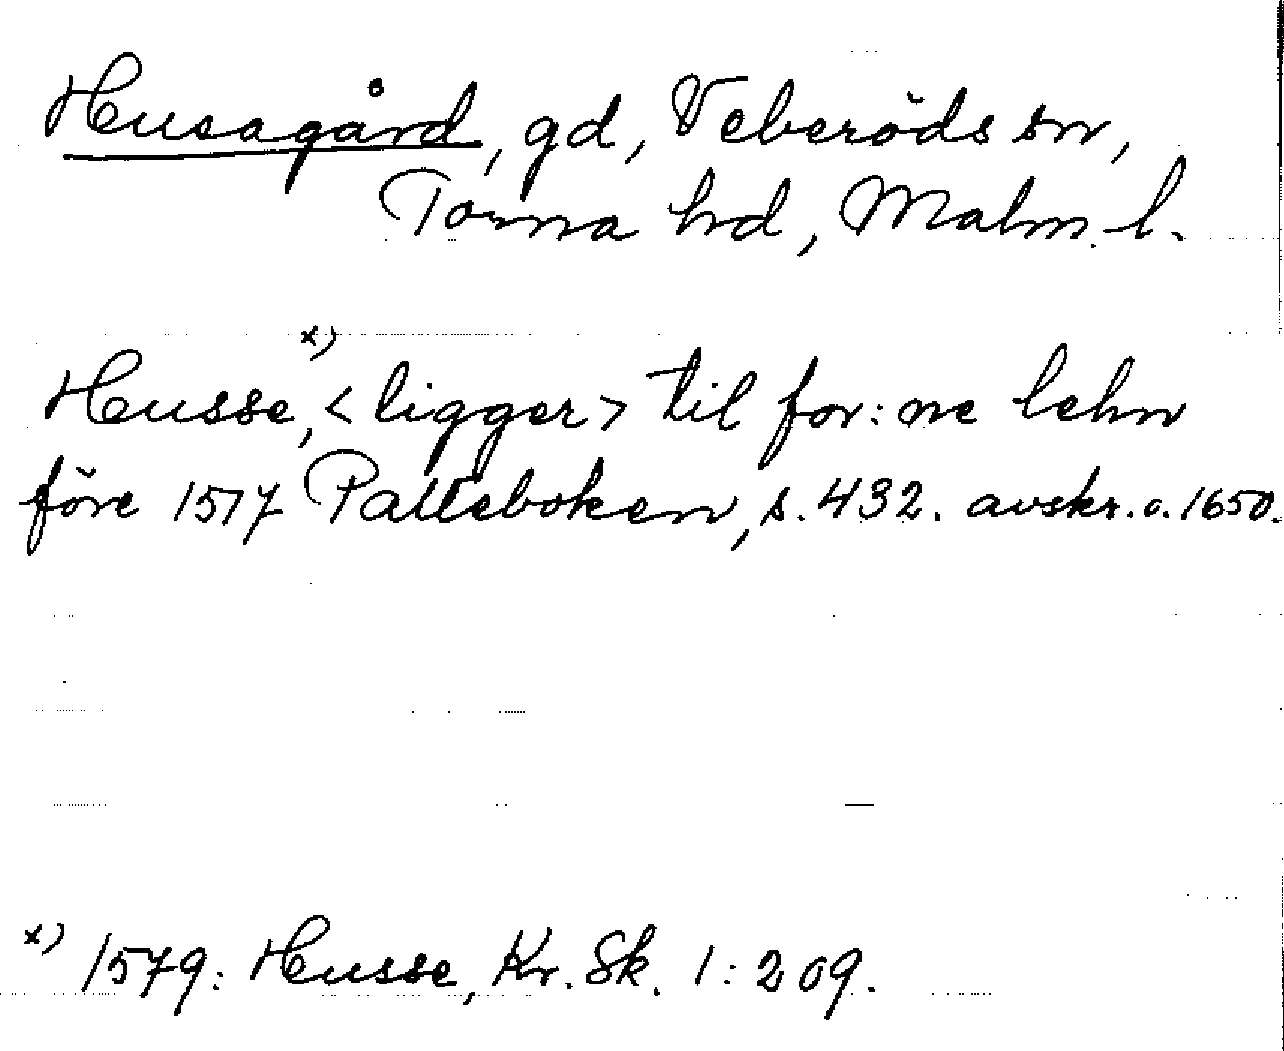 Husagård, gd, Veberöds sn,
Torna hd, Malm. l.
Husse, x) <ligger> til for:ne lehn
före 1517 Palteboken, s. 432. avskr. o. 1650.
x) 1579: Husse, Kr. Sk. 1:209.